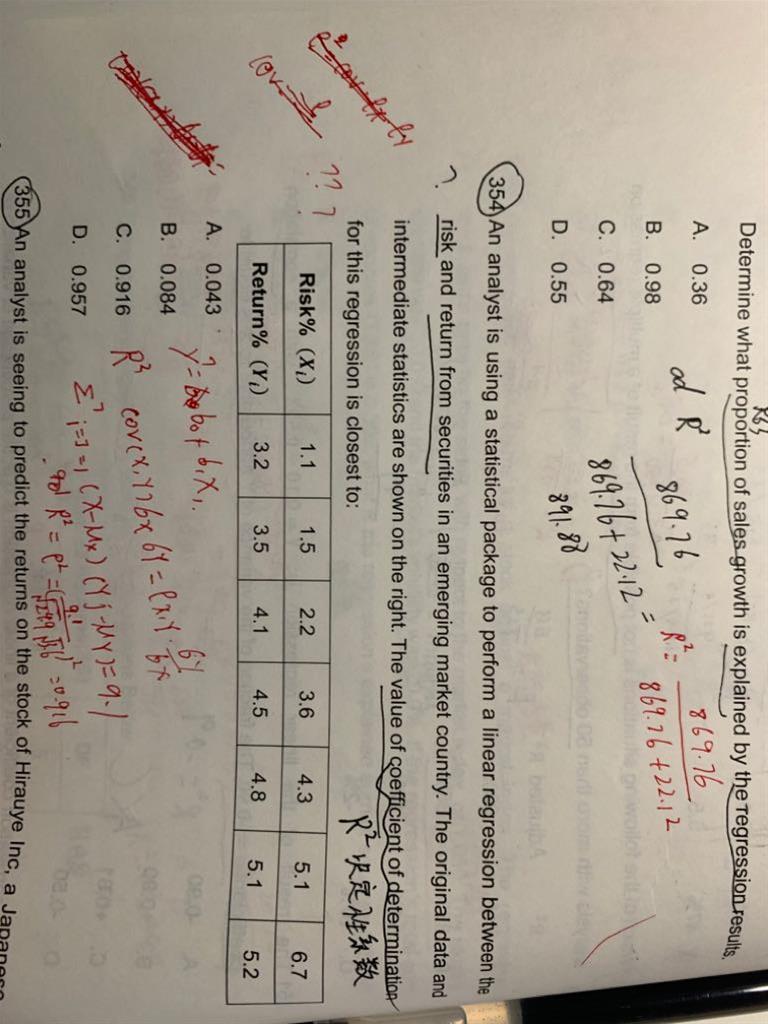 Determine what proportion of sales growth is explained by the regression results.
A. 0.36
B. 0.98
C. 0.64
D. 0.55
R²
869.76
869.76+22.12
=
891.88
R²= 869.76
869.76+22.12
354 An analyst is using a statistical package to perform a linear regression between the
? risk and return from securities in an emerging market country. The original data and
intermediate statistics are shown on the right. The value of coefficient of determination
for this regression is closest to:
R² 决定性系数
???
Risk% (Xᵢ) 1.1 1.5 2.2 3.6 4.3 5.1 6.7
Return% (Yᵢ) 3.2 3.5 4.1 4.5 4.8 5.1 5.2
A. 0.043
B. 0.084
C. 0.916
D. 0.957
355 An analyst is seeing to predict the returns on the stock of Hirauye Inc, a Japanese